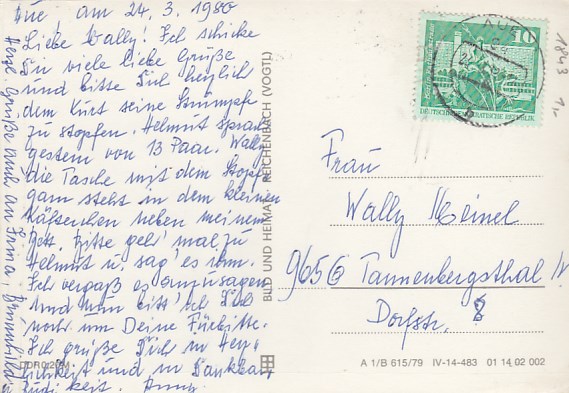 Aue, am 24. 3. 1980
Liebe Wally! Ich schicke
Dir viele liebe Grüße
und bitte Dich herzlich
dem Kurt seine Strümpfe
zu stopfen. Helmut sprach
gestern von 13 Paar. Wally
die Tasche mit dem Stopf-
garn steht in dem kleinen
Kästchen neben meinem
Bett. Bitte geh' mal zu
Helmut u. sag' es ihm.
Ich vergaß es anzusagen
und nun bitt' ich Dich
noch um Deine Fürbitte.
Ich grüße Dich in Herz-
lichkeit und in Dankbar-
keit.
Herzl. Grüße auch an Irma, Brunhild
BILD UND HEIMAT REICHENBACH (VOGTL)
10
DEUTSCHE DEMOKRATISCHE REPUBLIK
AUE
1843
Frau
Wally Meinel
9656 Tannenbergsthal
Dorfstr. 8
DDR
A 1/B 615/79 IV-14-483 01 14 02 002